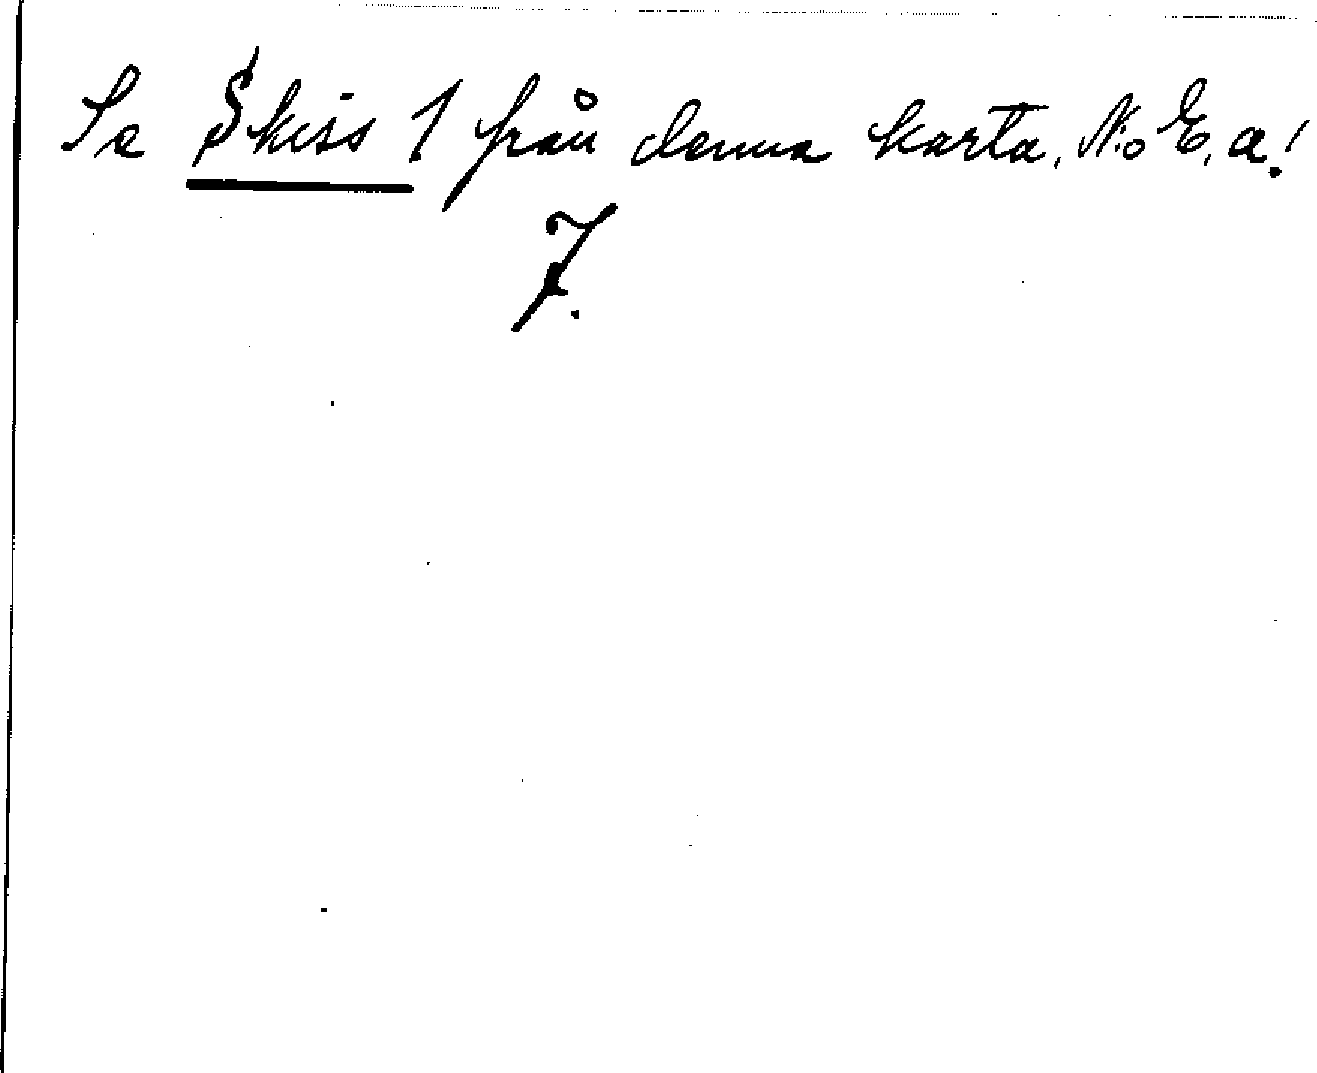 Se Skiss 1 från denna karta, No E, a!
7.